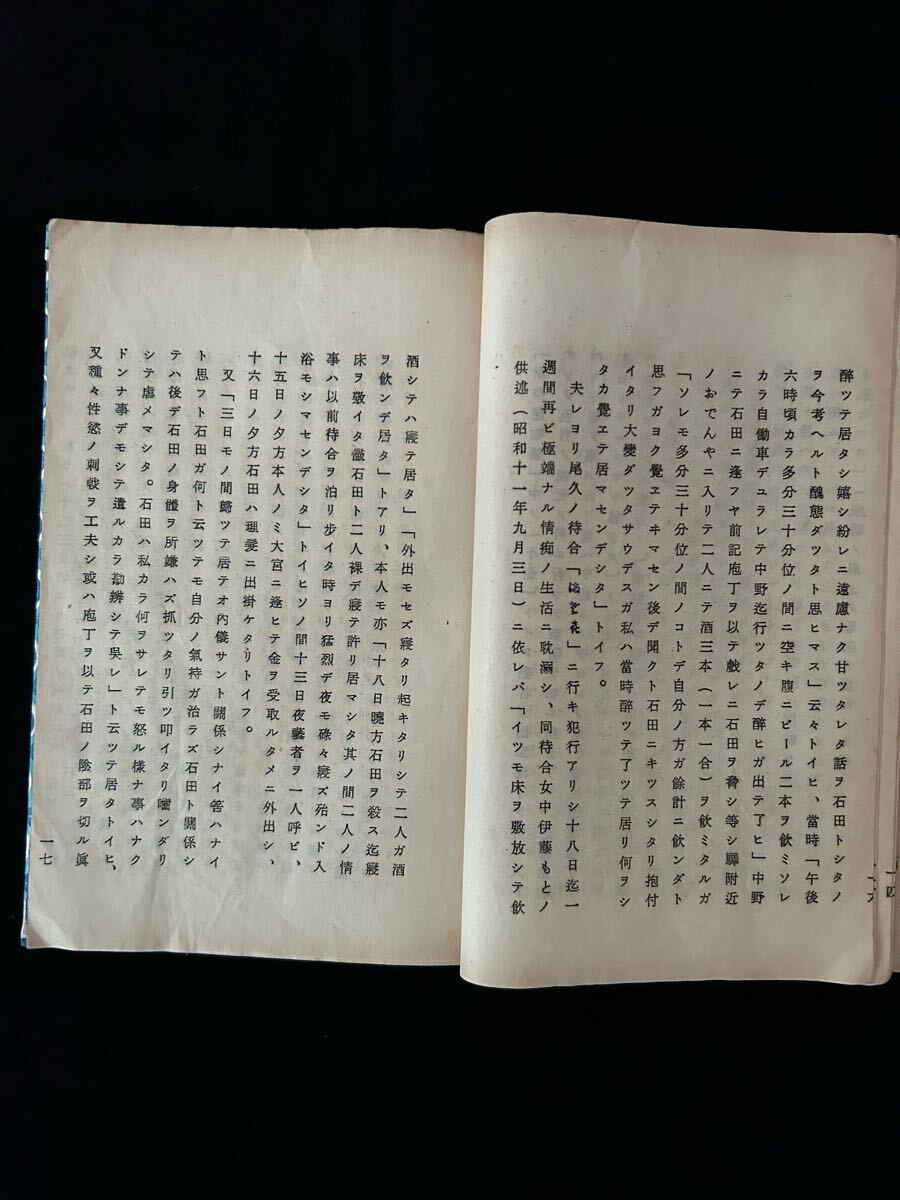 醉ツテ居タシ嬉シ紛レニ遠慮ナク甘ツタレタ話ヲ石田トシタノ
ヲ今考ヘルト醜態ダツタト思ヒマス」云々トイヒ、當時「午後
六時頃カラ多分三十分位ノ間ニ空キ腹ニビール二本ヲ飲ミソレ
カラ自働車デユラレテ中野迄行ツタノデ醉ヒガ出テ了ヒ」中野
ニテ石田ニ逢フヤ前記庖丁ヲ以テ戲レニ石田ヲ脅シ等シ驛附近
ノおでんやニ入リテ二人ニテ酒三本(一本一合)ヲ飲ミタルガ
「ソレモ多分三十分位ノ間ノコトデ自分ノ方ガ餘計ニ飲ンダト
思フガヨク覺エテヰマセン後デ聞クト石田ニキツスシタリ抱付
イタリ大變ダツタサウデスガ私ハ當時醉ツテ了ツテ居リ何ヲシ
タカ覺エテ居マセンデシタ」トイフ。
夫レヨリ尾久ノ待合「」ニ行キ犯行アリシ十八日迄一
週間再ビ極端ナル情痴ノ生活ニ耽溺シ、同待合女中伊藤もとノ
供述(昭和十一年九月三日)ニ依レバ「イツモ床ヲ敷放シテ飲
一六
一四
酒シテハ寢テ居タ」「外出モセズ寢タリ起キタリシテ二人ガ酒
ヲ飲ンデ居タ」トアリ、本人モ亦「十八日曉方石田ヲ殺ス迄寢
床ヲ敷イタ儘石田ト二人裸デ寢テ許リ居マシタ其ノ間二人ノ情
事ハ以前待合ヲ泊リ步イタ時ヨリ猛烈デ夜モ碌々寢ズ殆ンド入
浴モシマセンデシタ」トイヒソノ間十三日夜藝者ヲ一人呼ビ、
十五日ノ夕方本人ノミ大宮ニ逢ヒテ金ヲ受取ルタメニ外出シ、
十六日ノ夕方石田ハ理髮ニ出掛ケタリトイフ。
又「三日モノ間歸ツテ居テオ內儀サント關係シナイ筈ハナイ
ト思フト石田ガ何ト云ツテモ自分ノ氣持ガ治ラズ石田ト關係シ
テハ後デ石田ノ身體ヲ所嫌ハズ抓ツタリ引ツ叩イタリ噛ンダリ
シテ虐メマシタ。石田ハ私カラ何ヲサレテモ怒ル樣ナ事ハナク
ドンナ事デモシテ遣ルカラ勘辨シテ吳レ」ト云ツテ居タトイヒ、
又種々性慾ノ刺戟ヲ工夫シ或ハ庖丁ヲ以テ石田ノ陰部ヲ切ル眞
一七